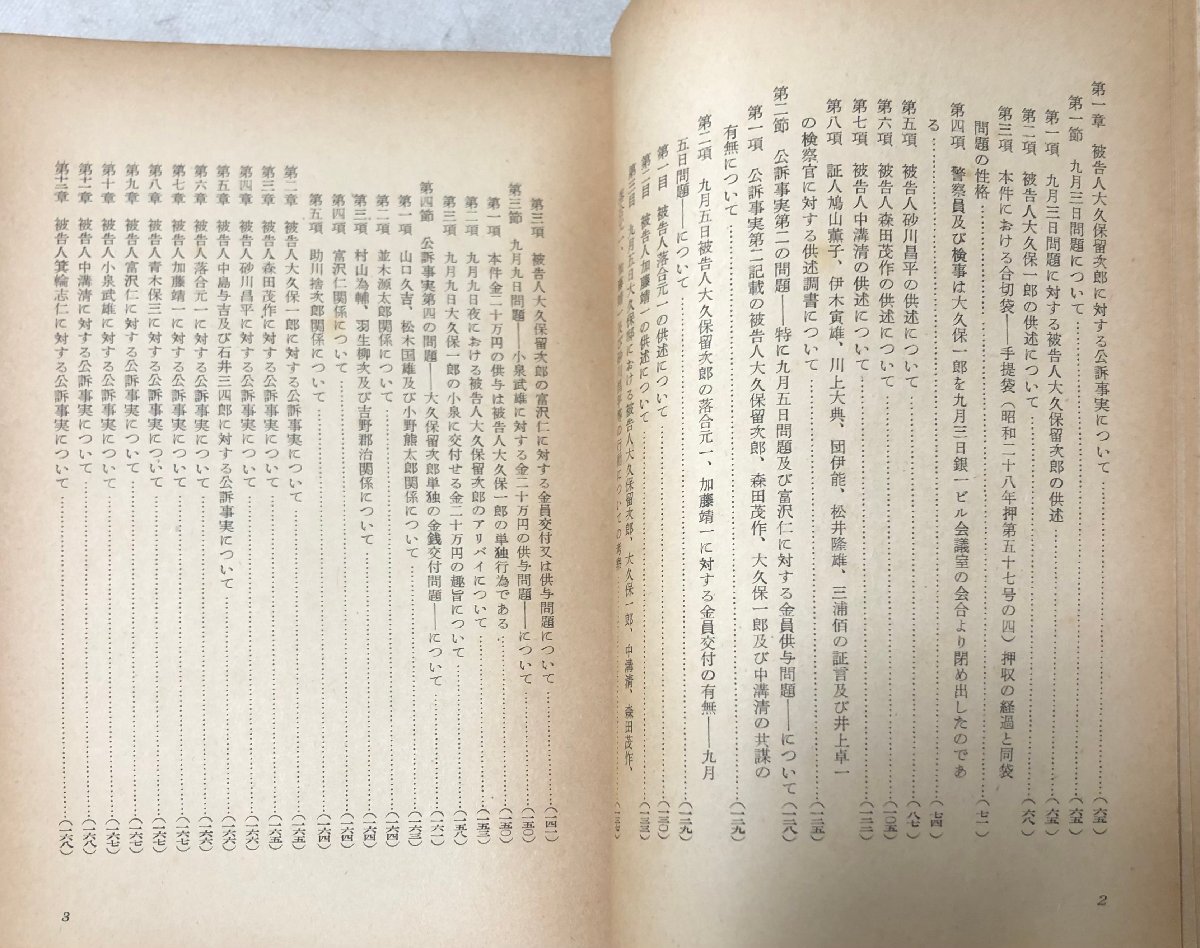 第一章 被告人大久保留次郎に対する公訴事実について……(六五)
第一節 九月三日問題について……(六五)
第一項 九月三日問題に対する被告人大久保留次郎の供述……(六五)
第二項 被告人大久保一郎の供述について……(六八)
第三項 本件における合切袋――手提袋(昭和二十八年押第五十七号の四)押収の経過と同袋
問題の性格……(七一)
第四項 警察員及び検事は大久保一郎を九月三日銀一ビル会議室の会合より閉め出したのであ
る……(七四)
第五項 被告人砂川昌平の供述について……(八七)
第六項 被告人森田茂作の供述について……(一〇五)
第七項 被告人中溝清の供述について……(一二二)
第八項 証人鳩山薫子、伊木寅雄、川上大典、団伊能、松井隆雄、三浦佰の証言及び井上卓一
の検察官に対する供述調書について……(一二五)
第二節 公訴事実第二の問題――特に九月五日問題及び富沢仁に対する金員供与問題――について(一二八)
第一項 公訴事実第二記載の被告人大久保留次郎、森田茂作、大久保一郎及び中溝清の共謀の
有無について……(一二九)
第二項 九月五日被告人大久保留次郎の落合元一、加藤靖一に対する金員交付の有無――九月
五日問題――について……(一二九)
第一目 被告人落合元一の供述について……(一三〇)
第二目 被告人加藤靖一の供述について……(一三三)
第三目 九月五日大久保邸における被告人大久保留次郎、大久保一郎、中溝清、森田茂作、
第三項 被告人大久保留次郎の富沢仁に対する金員交付又は供与問題について……(一四一)
第三節 九月九日問題――小泉武雄に対する金二十万円の供与問題――について……(一五〇)
第一項 本件金二十万円の供与は被告人大久保一郎の単独行為である……(一五〇)
第二項 九月九日夜における被告人大久保留次郎のアリバイについて……(一五二)
第三項 九月九日大久保一郎の小泉に交付せる金二十万円の趣旨について……(一五八)
第四節 公訴事実第四の問題――大久保留次郎単独の金銭交付問題――について……(一六一)
第一項 山口久吉、松木国雄及び小野熊太郎関係について……(一六三)
第二項 並木源太郎関係について……(一六四)
第三項 村山為輔、羽生柳次及び吉野郡治関係について……(一六四)
第四項 富沢仁関係について……(一六四)
第五項 助川捨次郎関係について……(一六四)
第二章 被告人大久保一郎に対する公訴事実について……(一六五)
第三章 被告人森田茂作に対する公訴事実について……(一六五)
第四章 被告人砂川昌平に対する公訴事実について……(一六六)
第五章 被告人中島与吉及び石井三四郎に対する公訴事実について……(一六六)
第六章 被告人落合元一に対する公訴事実について……(一六六)
第七章 被告人加藤靖一に対する公訴事実について……(一六七)
第八章 被告人青木保三に対する公訴事実について……(一六七)
第九章 被告人富沢仁に対する公訴事実について……(一六七)
第十章 被告人小泉武雄に対する公訴事実について……(一六七)
第十一章 被告人中溝清に対する公訴事実について……(一六八)
第十二章 被告人箕輪志仁に対する公訴事実について……(一六八)
2
3